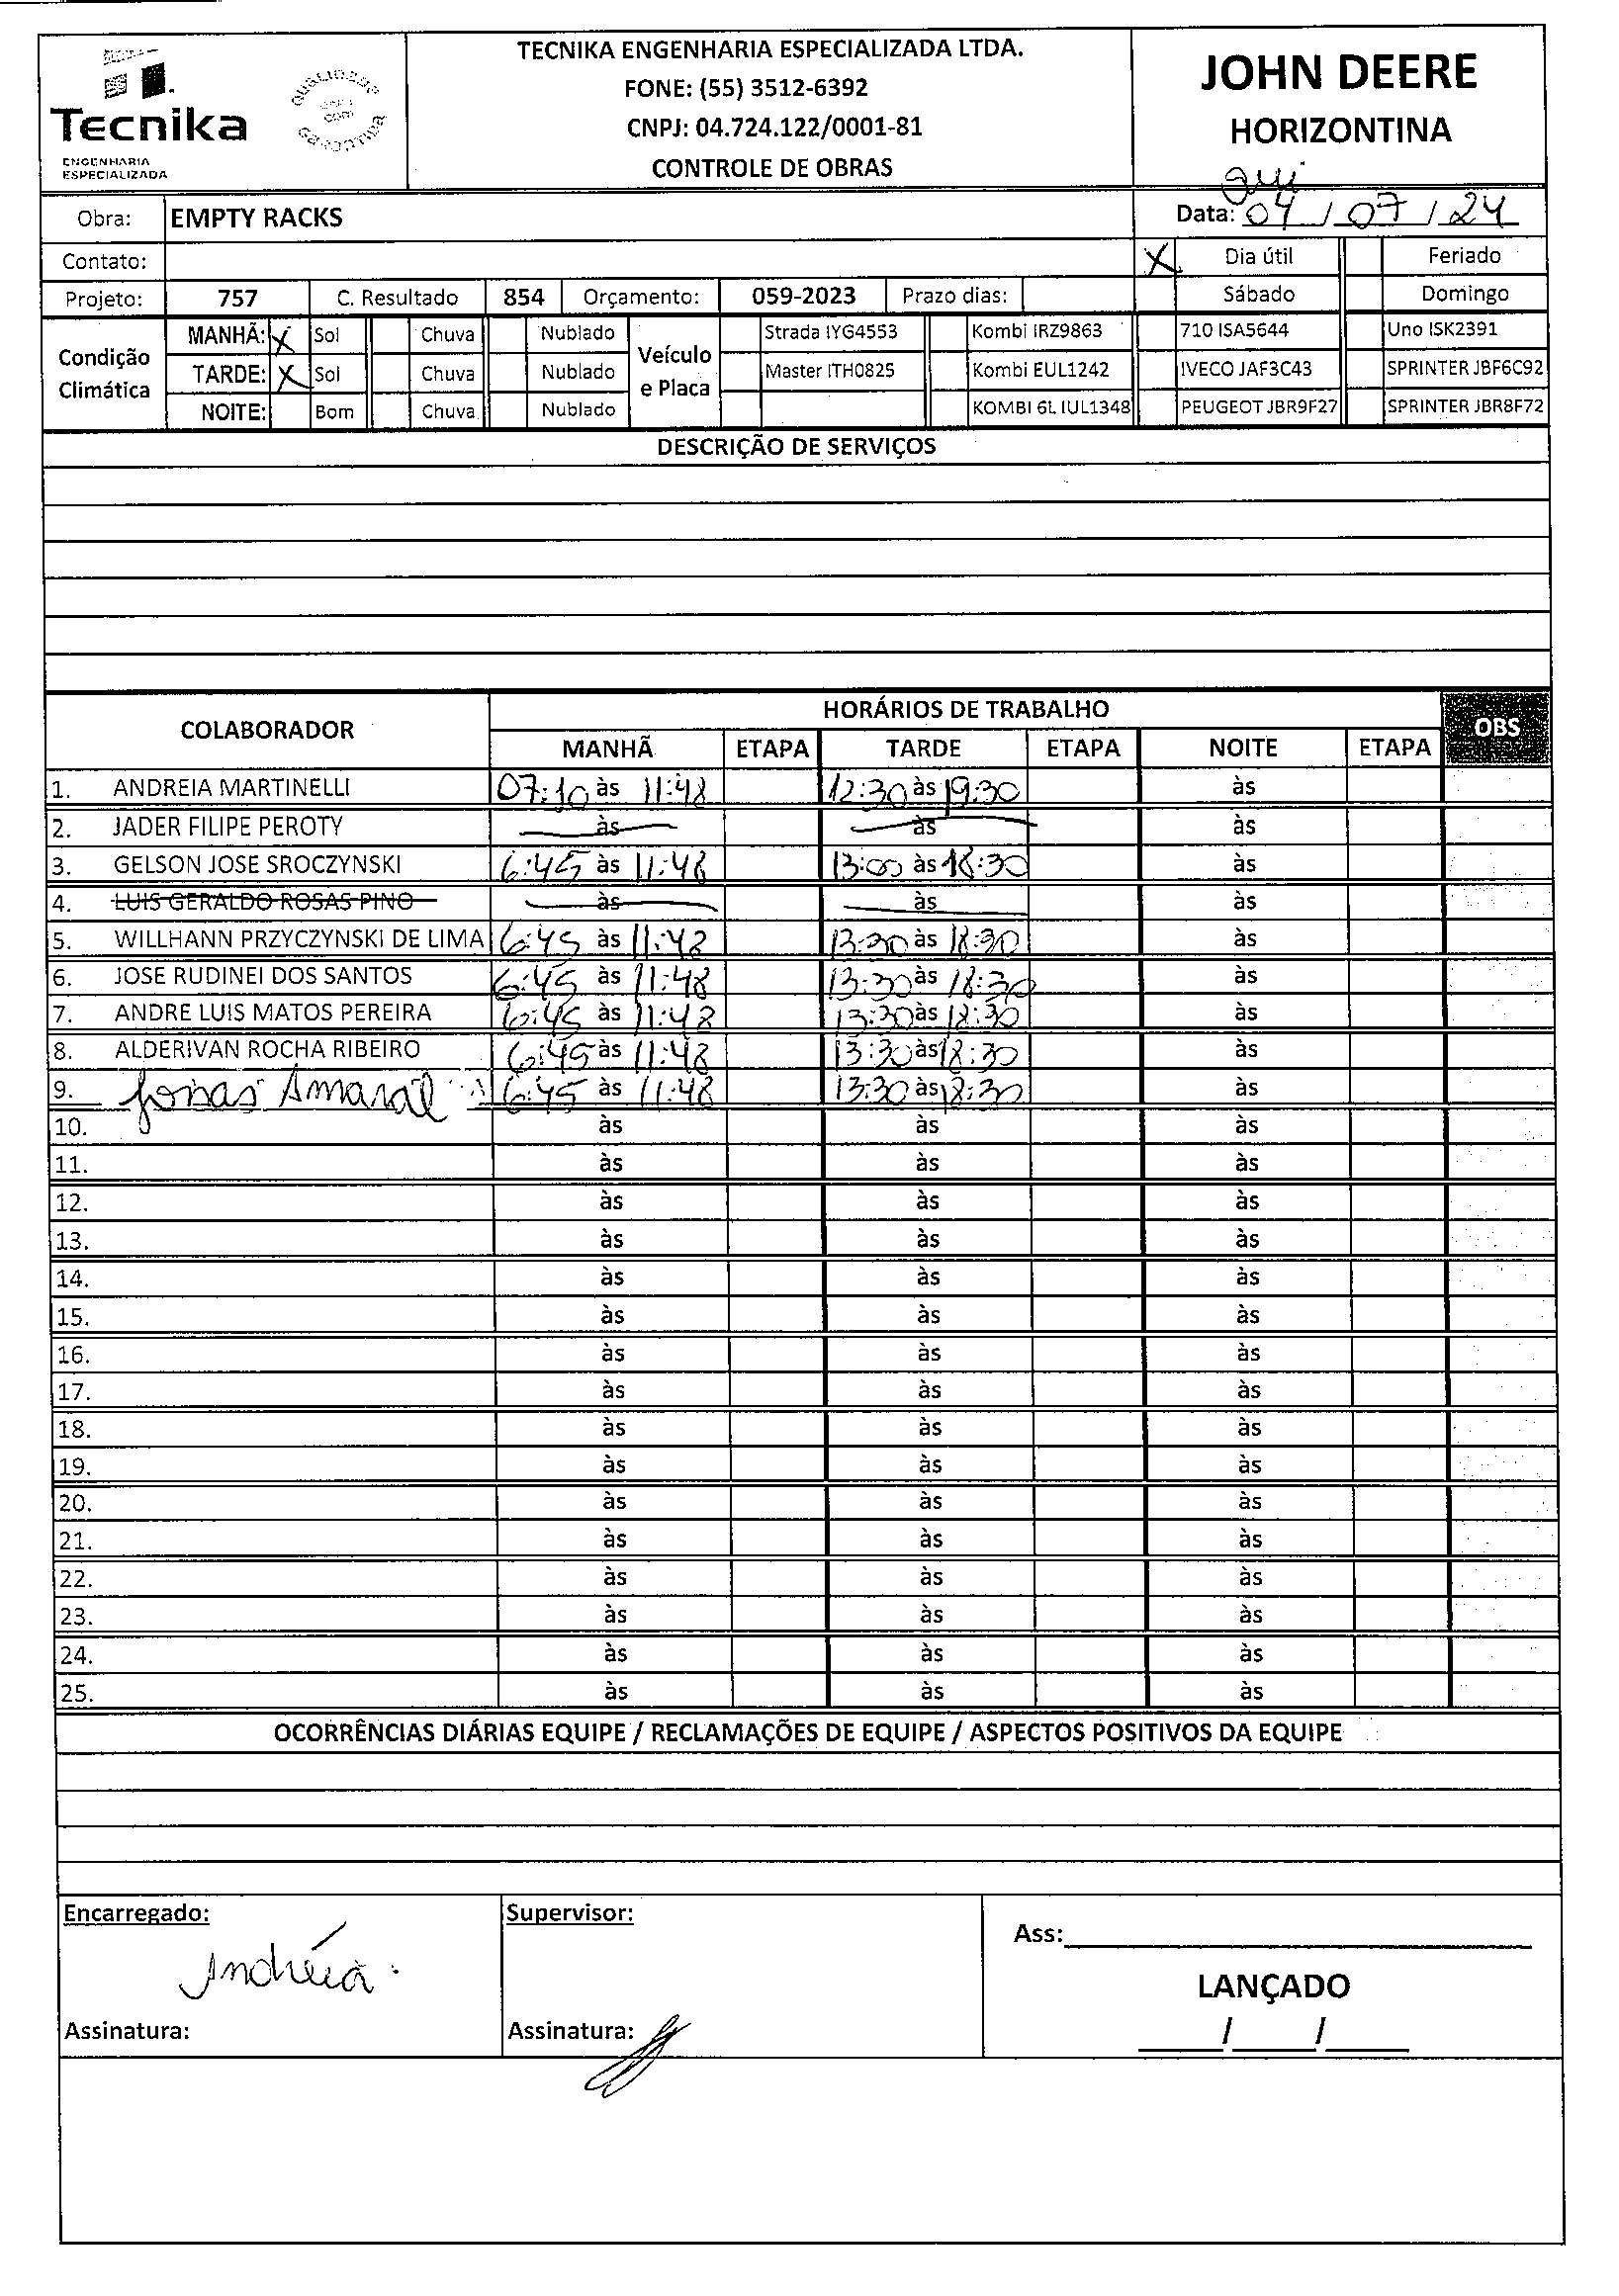 Tecnika
ENGENHARIA
ESPECIALIZADA
TECNIKA ENGENHARIA ESPECIALIZADA LTDA.
FONE: (55) 3512-6392
CNPJ: 04.724.122/0001-81
CONTROLE DE OBRAS
JOHN DEERE
HORIZONTINA
qui
Obra: EMPTY RACKS Data: 04 / 07 / 24
Contato: X Dia útil Feriado
Projeto: 757 C. Resultado 854 Orçamento: 059-2023 Prazo dias: Sábado Domingo
Condição Climática
MANHÃ: X Sol Chuva Nublado
TARDE: X Sol Chuva Nublado
NOITE: Bom Chuva Nublado
Veículo e Placa
Strada IYG4553 Kombi IRZ9863 710 ISA5644 Uno ISK2391
Master ITH0825 Kombi EUL1242 IVECO JAF3C43 SPRINTER JBF6C92
KOMBI 6L IUL1348 PEUGEOT JBR9F27 SPRINTER JBR8F72
DESCRIÇÃO DE SERVIÇOS
COLABORADOR HORÁRIOS DE TRABALHO OBS
MANHÃ ETAPA TARDE ETAPA NOITE ETAPA
1. ANDREIA MARTINELLI 07:10 às 11:48 12:30 às 19:30 às
2. JADER FILIPE PEROTY às às às
3. GELSON JOSE SROCZYNSKI 6:45 às 11:48 13:00 às 18:30 às
4. LUIS GERALDO ROSAS PINO às às às
5. WILLHANN PRZYCZYNSKI DE LIMA 6:45 às 11:48 13:30 às 18:30 às
6. JOSE RUDINEI DOS SANTOS 6:45 às 11:48 13:30 às 18:30 às
7. ANDRE LUIS MATOS PEREIRA 6:45 às 11:48 13:30 às 18:30 às
8. ALDERIVAN ROCHA RIBEIRO 6:45 às 11:48 13:30 às 18:30 às
9. Jonas Amaral 6:45 às 11:48 13:30 às 18:30 às
10. às às às
11. às às às
12. às às às
13. às às às
14. às às às
15. às às às
16. às às às
17. às às às
18. às às às
19. às às às
20. às às às
21. às às às
22. às às às
23. às às às
24. às às às
25. às às às
OCORRÊNCIAS DIÁRIAS EQUIPE / RECLAMAÇÕES DE EQUIPE / ASPECTOS POSITIVOS DA EQUIPE
Encarregado: Supervisor:
Ass:
Andréia
LANÇADO
Assinatura: Assinatura: / /